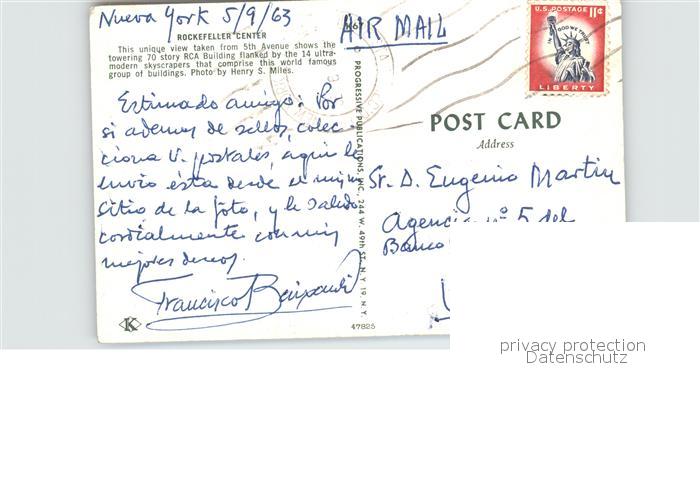 Nueva York 5/9/63
AIR MAIL
ROCKEFELLER CENTER
This unique view taken from 5th Avenue shows the
towering 70 story RCA Building flanked by the 14 ultra-
modern skyscrapers that comprise this world famous
group of buildings. Photo by Henry S. Miles.
Estimado amigo: Por
si ademas de sellos, colec-
ciona V. postales, aqui le
envio ésta desde el mismo
sitio de la foto, y le saludo
cordialmente con mis
mejores deseos.
Francisco
K
47825
PROGRESSIVE PUBLICATIONS, INC., 244 W. 49th ST., N. Y. 19, N. Y.
U.S. POSTAGE 11¢
IN GOD WE TRUST
LIBERTY
POST CARD
Address
Sr. D. Eugenio Martin
Agencia nº 5 del
Banco
privacy protection
Datenschutz